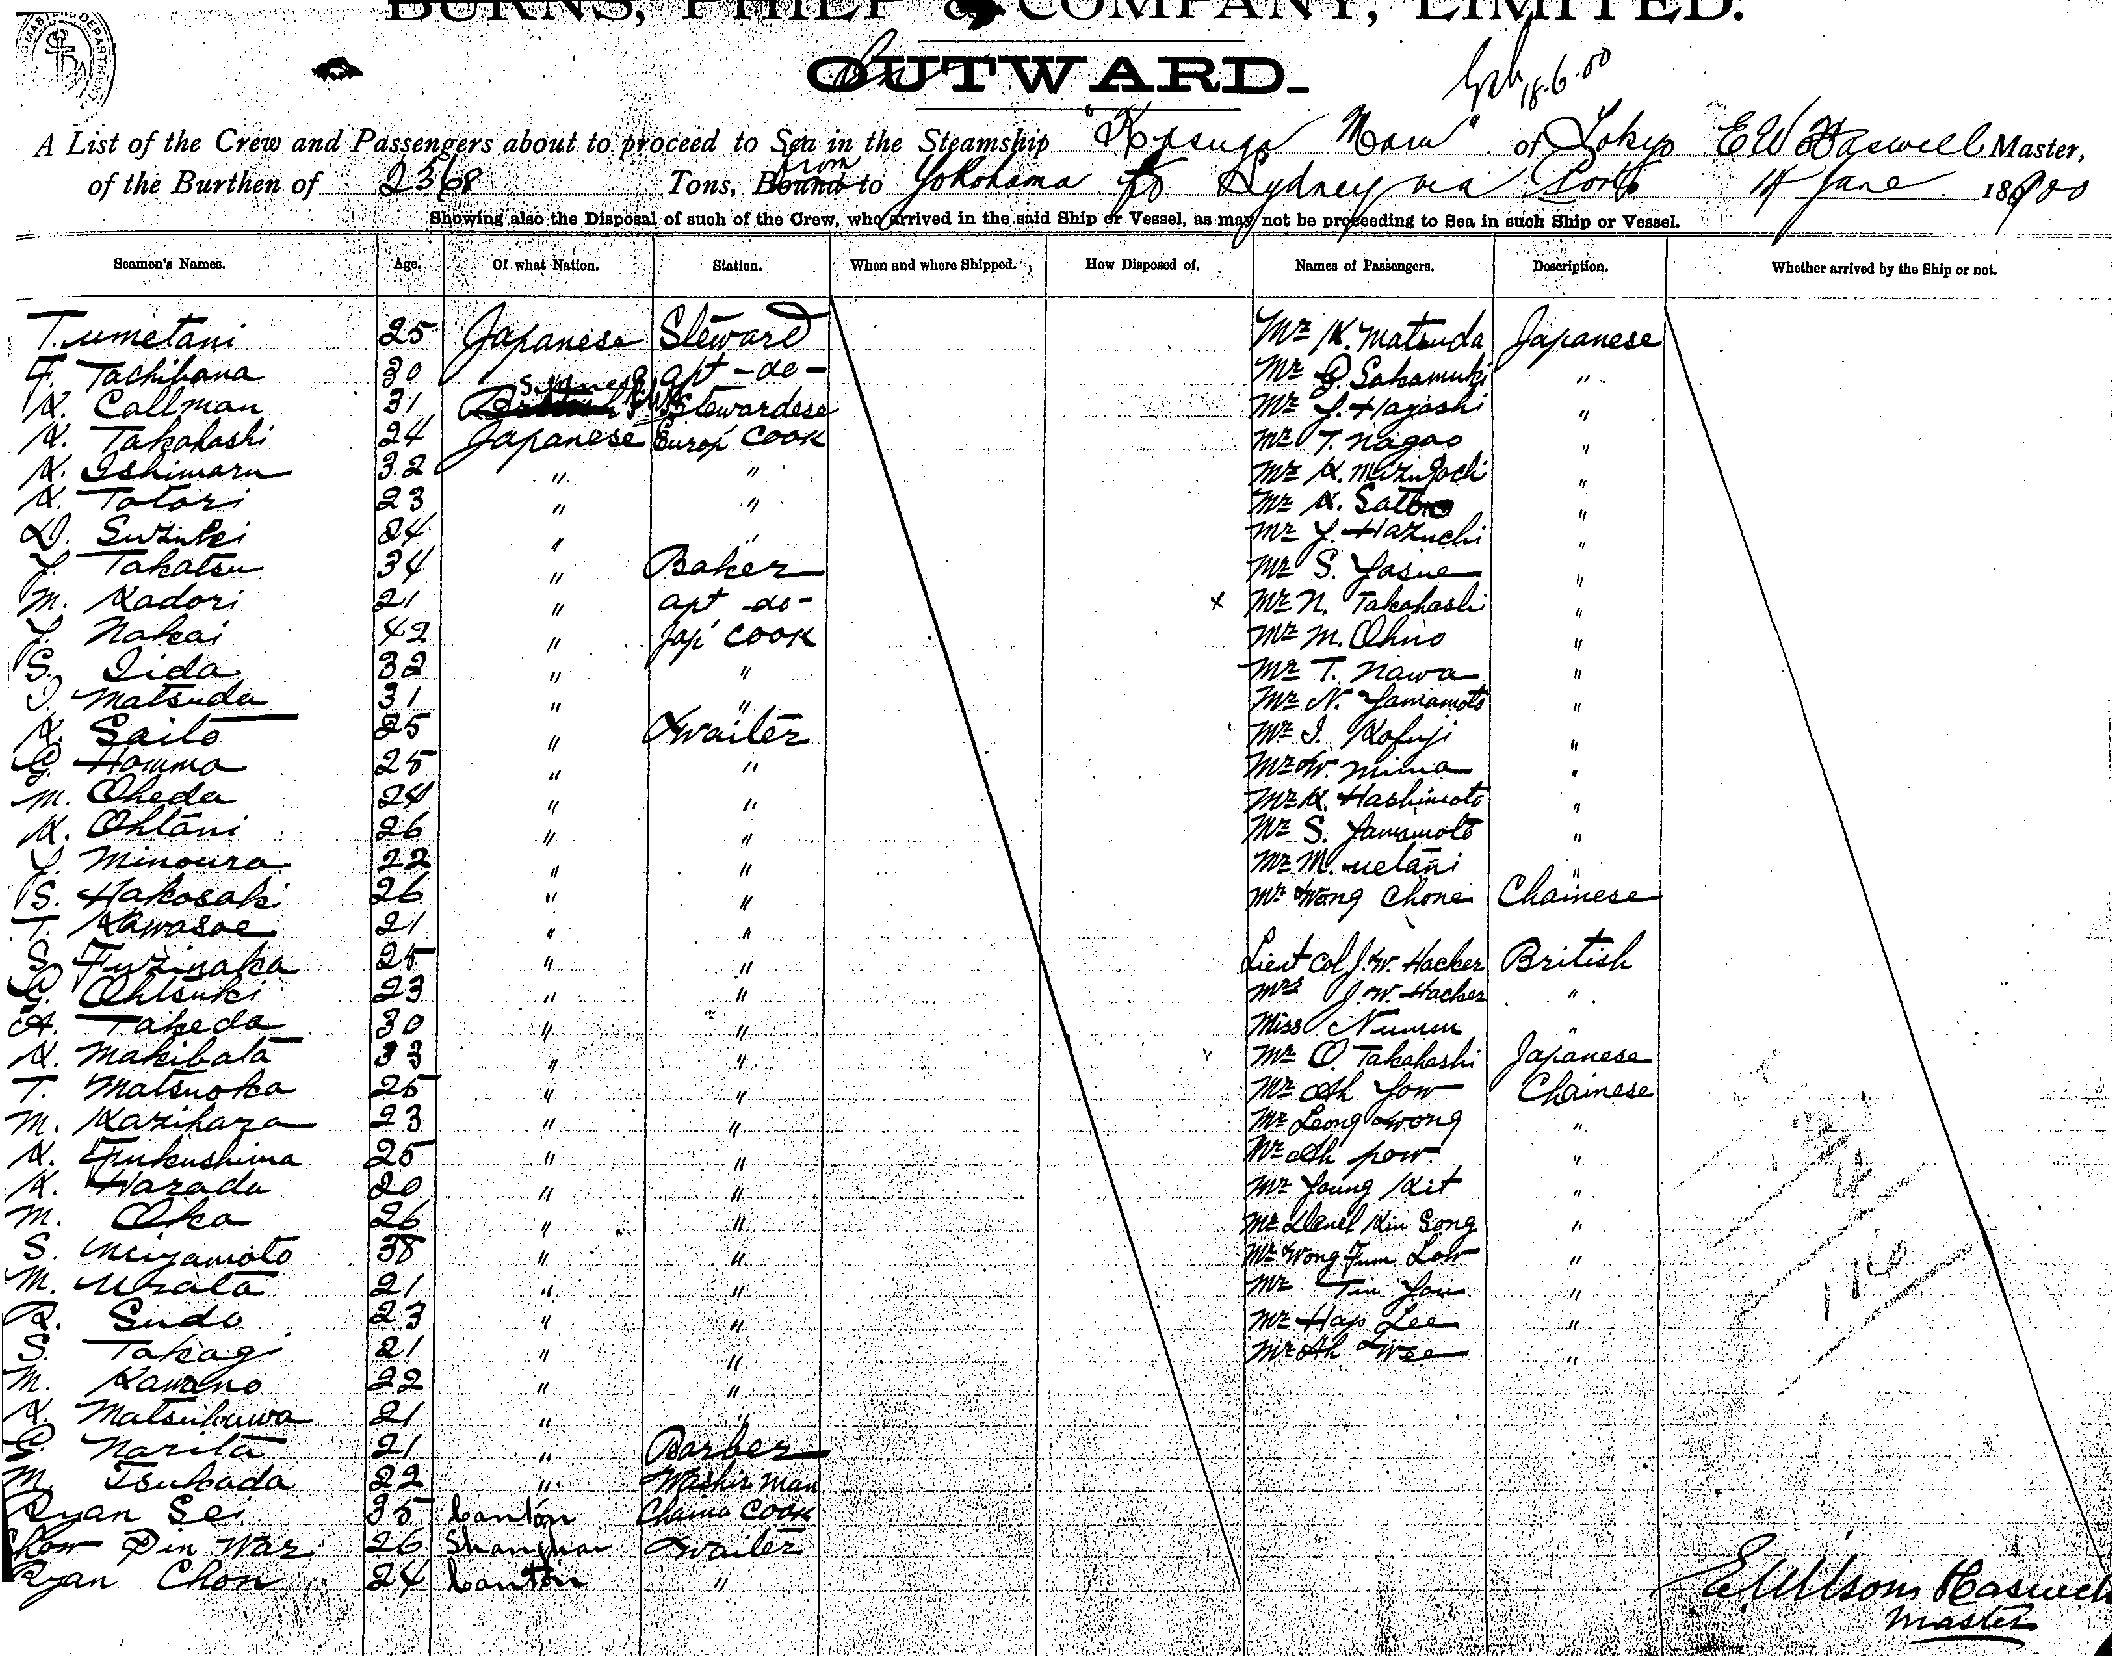 BURNS, PHILP & COMPANY, LIMITED.
OUTWARD.
18.6.00
A List of the Crew and Passengers about to proceed to Sea in the Steamship "Kasuga Maru" of Tokyo E W Haswell Master,
of the Burthen of 2368 Tons, Bound to from Yokohama to Sydney via Ports 14 June 18900
Showing also the Disposal of such of the Crew, who arrived in the said Ship or Vessel, as may not be proceeding to Sea in such Ship or Vessel.
Seamen's Names. Age. Of what Nation. Station. When and where Shipped. How Disposed of. Names of Passengers. Description. Whether arrived by the Ship or not.
T. Umetani 25 Japanese Steward Mr K. Matsuda Japanese
F. Tachibana 30 apt -do- Mr G. Sakamuki "
K. Callman 31 Stewardese Mr Y. Hayashi "
K. Takahashi 24 Japanese Europ' Cook Mr T. Nagao "
K. Ishimaru 32 " " Mr K. Mizuguchi "
K. Totori 23 " " Mr K. Sato "
D. Suzuki 24 " " Mr Y. Hazuchi "
Y. Takatsu 34 " Baker Mr S. Yasue "
M. Kadori 21 " apt -do- x Mr N. Takahashi "
Y. Nakai 42 " Jap' Cook Mr M. Ohno "
S. Iida 32 " " Mr T. Nawa "
I. Matsuda 31 " " Mr N. Yamamoto "
K. Saito 25 " Waiter Mr I. Kofuji "
G. Homma 25 " " Mr W. Mima "
M. Okeda 24 " " Mr K. Hashimoto "
K. Ohtani 26 " " Mr S. Yamamoto "
Y. Minoura 22 " " Mr M. Uetani "
S. Hakosaki 26 " " Mr Wong Chone Chainese
T. Kawasoe 21 " "
S. Furinaka 25 " " Lieut Col J. W. Hacker British
G. Ohtsuki 23 " " Mrs J. W. Hacker "
A. Takeda 30 " " Miss Nunun "
K. Makibata 33 " " Mr O. Takahashi Japanese
T. Matsuoka 25 " " Mr Ah Yow Chainese
M. Karihara 23 " " Mr Leong Wong "
K. Fukushima 25 " " Mr Ah Pow "
K. Harada 20 " " Mr Young Kit "
M. Oka 26 " " Mr Kin Song "
S. Miyamoto 38 " " Mr Wong Fum Low "
M. Urata 21 " " Mr Tin You "
R. Sudo 23 " " Mr Hap Lee "
S. Takagi 21 " " Mr Ah Wee "
M. Kawano 22 " "
K. Matsukuwa 21 " "
G. Narita 21 " Barber
M. Tsukada 22 " Washer man
Ryan Sei 35 Canton China Cook
Chow Pin War 26 Shanghai Waiter
Ryan Chon 24 Canton "
E. Wilson Haswell
Master